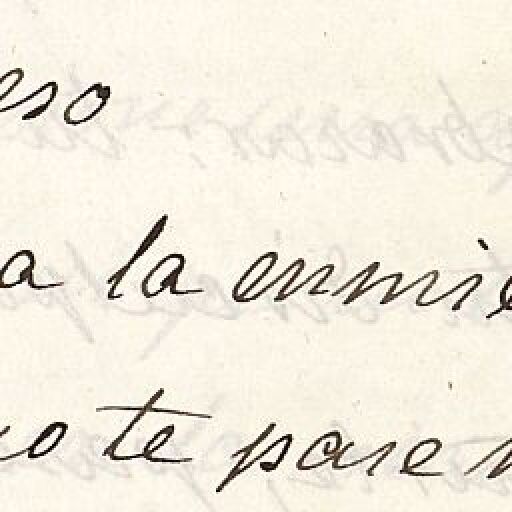 eso
a la enmie
o te pase